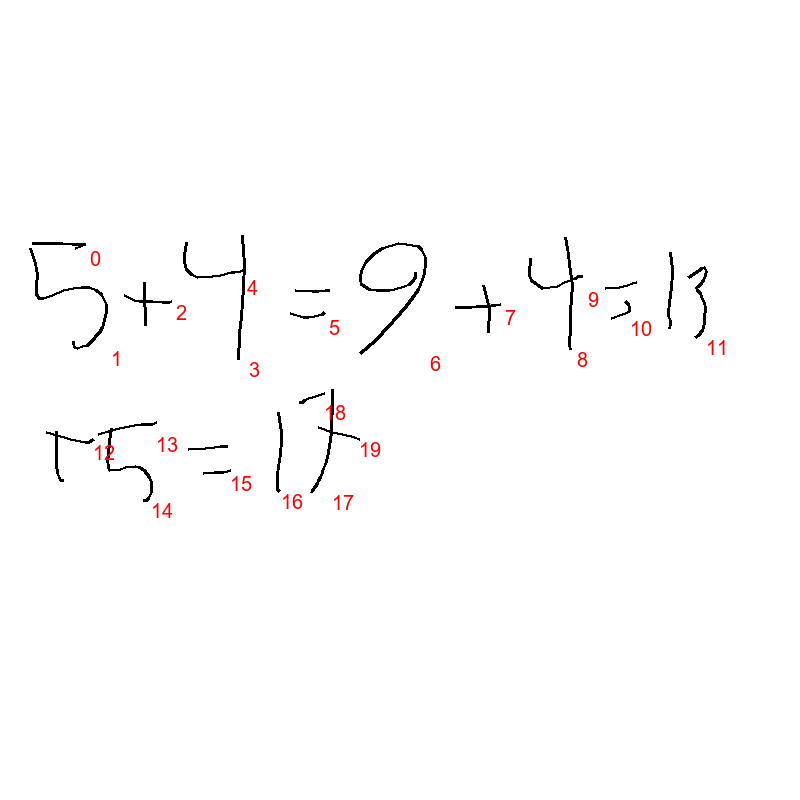 5+4=9+4=13
0 1 2 3 4 5 6 7 8 9 10 11
+5=17
12 13 14 15 16 17 18 19